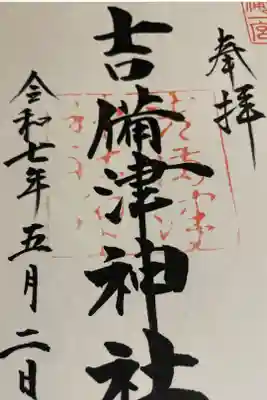 奉拝
吉備津神社
令和七年五月二日